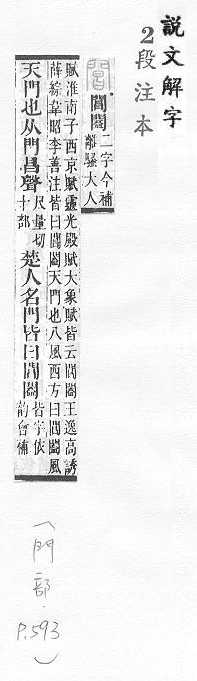 説文解字
2段注本
閶
閶闔 二字今補
離騷大人
賦淮南子西京賦靈光殿賦大象賦皆云閶闔王逸高誘
薛綜韋昭李善注皆曰閶闔天門也八風西方曰閶闔風
天門也从門昌聲 尺量切 十部 楚人名門皆曰閶闔 皆字依 韵會補
(門部. P.593)